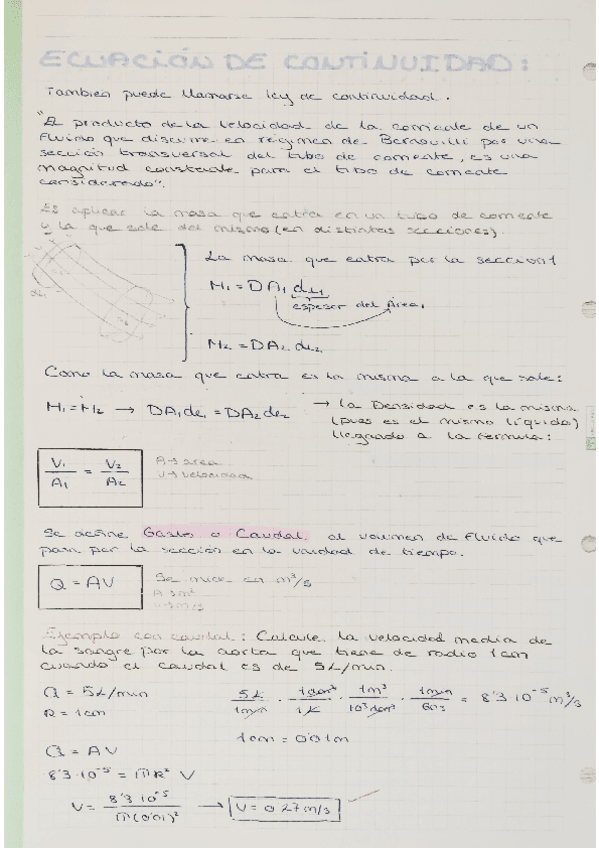 ECUACIÓN DE CONTINUIDAD:
También puede llamarse ley de continuidad.
"El producto de la velocidad de la corriente de un
fluido que discurre en régimen de Bernouilli por una
sección transversal del tubo de corriente, es una
magnitud constante para el tubo de corriente
considerado".
Es aplicar la masa que entra en un tubo de corriente
y la que sale del mismo (en distintas secciones).
La masa que entra por la sección 1
M₁ = DA₁ de₁
espesor del Área₁
M₂ = DA₂ de₂
Como la masa que entra es la misma a la que sale:
M₁ = M₂ → DA₁de₁ = DA₂de₂ → la Densidad es la misma
(pues es el mismo líquido)
llegando a la fórmula:
V₁/A₁ = V₂/A₂
A → area
V → velocidad
Se define Gasto o Caudal al volumen de fluido que
pasa por la sección en la unidad de tiempo.
Q = AV
Se mide en m³/s
A → m²
V → m/s
Ejemplo con caudal: Calcule la velocidad media de
la sangre por la aorta que tiene de radio 1cm
cuando el caudal es de 5L/min.
Q = 5L/min
R = 1cm
5L/1min · 1dm³/1L · 1m³/10³dm³ · 1min/60s = 8'3·10⁻⁵ m³/s
1cm = 0'01m
Q = AV
8'3·10⁻⁵ = πR² V
V = 8'3·10⁻⁵/π(0'01)² → V = 0'27m/s